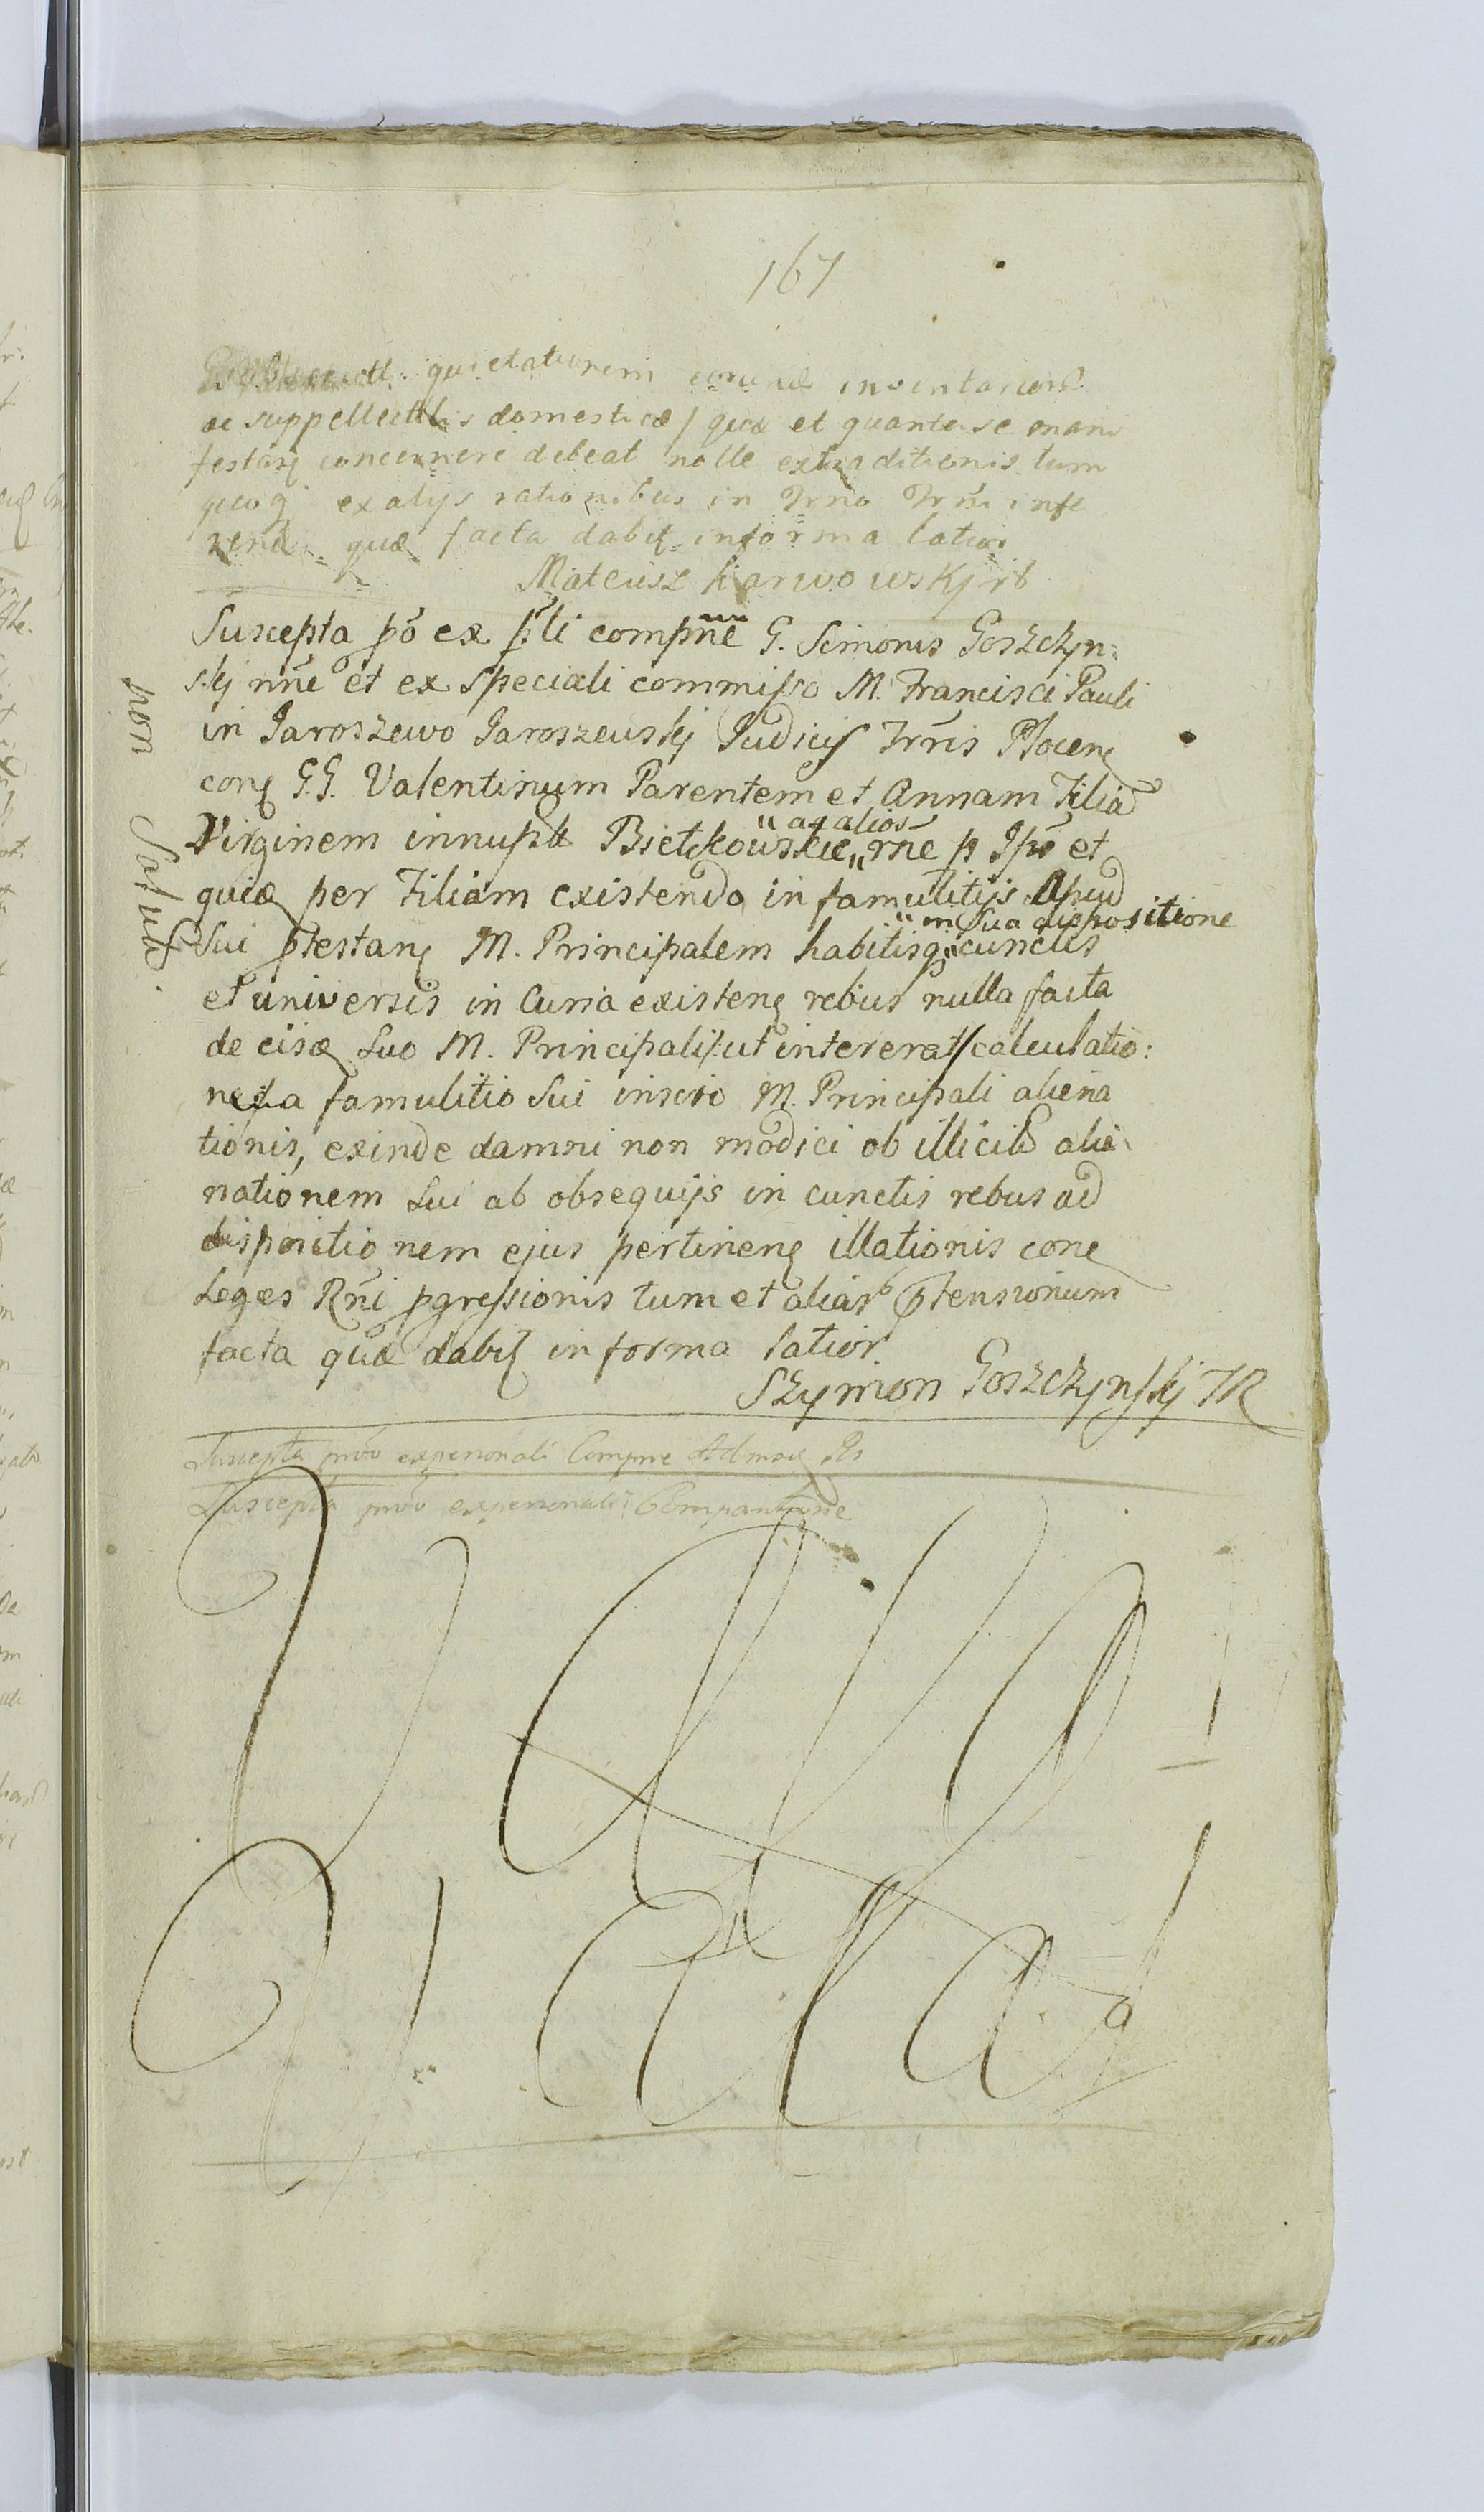 167
quietationem eorund inventariorũ
ac suppellectilis domesticæ / quæ et quanta se mani
festarę concernere debeat nolle extraditionis tum
quoq exalijs rationibus in Trno Trñi infe
rend quæ facta dabit informa latiori
Mateusz karwowskj
Suscepta põ ex p̃li compñe G. Simonis Goszczyn:
skj nñe et ex speciali commisso M. Francisci Pauli
in Jaroszewo Jaroszewskj Judicis Trr̃is Plocenę
conę G.G. Valentinum Parentem et Annam Filiã
Virginem innuptã Bietkowskie „ rñe p Ipõ et
„ ac alios
quia per Filiam existendo in famulitijs Apud
„ in sua dispositione
Sui ptestanę M. Principalem habitisq „ cunctis
et universis in Curia existenę rebus nulla facta
de eisd suo M. Principali /: ut intererat / calculatio:
ne a famulitio sui inscio M. Principali aliena
tionis, exinde damni non modici ob illicitã alie
nationem sui ab obsequijs in cunctis rebus ad
dispositionem ejus pertinenę illationis conę
Leges Rñi pgressionis tum et aliarb ptensionum
facta quæ dabit in forma latior
Szymon Goszczynskj
non Solut.
Suscepta prõo expersonali Compne Admodę
Suscepta prõo expersonali Comparitione